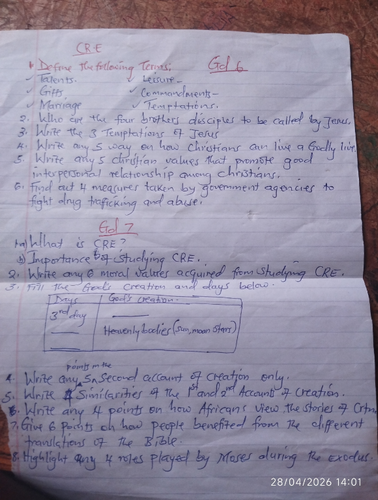 CRE
1. Define the following Terms: Gd 6
✓ Talents. ✓ Leisure -
✓ Gifts ✓ Commandments -
✓ Marriage ✓ Temptations.
2. Who are the four brothers disciples to be called by Jesus.
3. Write the 3 Temptations of Jesus
4. Write any 5 way on how Christians can live a Godly live.
5. Write any 5 christian values that promote good
interpersonal relationship among christians.
6. Find out 4 measures taken by government agencies to
fight drug traficking and abuse.
Gd 7
1a) What is CRE?
b) Importance of studying CRE.
2. Write any 6 moral values acquired from studying CRE.
3. Fill the God's creation and days below.
Days God's creation -
3rd day
Heavenly bodies (sun, moon stars)
points in the
4. Write any 5 Second account of creation only.
5. Write 4 Similarities of the 1st and 2nd Accounts of creation.
6. Write any 4 points on how Africans view the stories of
7. Give 6 points on how people benefited from the different
translations of the Bible
8. Highlight any 4 roles played by Moses during the exodus.
28/04/2026 14:01